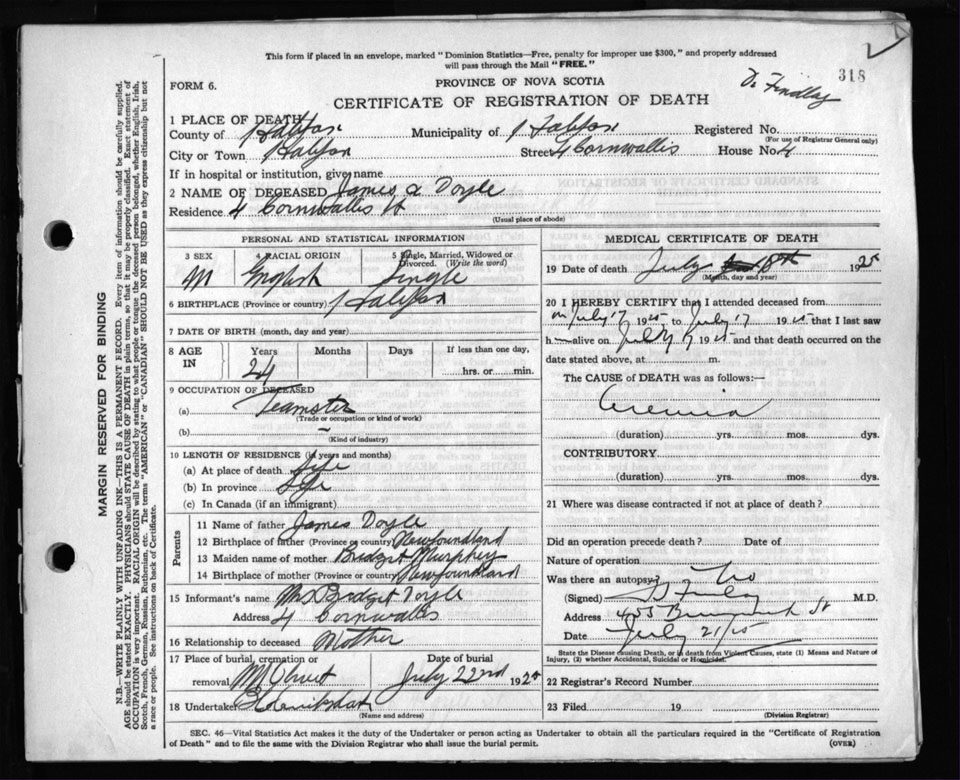 This form if placed in an envelope, marked "Dominion Statistics—Free, penalty for improper use $300," and properly addressed
will pass through the Mail "FREE."
318
FORM 6.
PROVINCE OF NOVA SCOTIA
Dr Findlay
CERTIFICATE OF REGISTRATION OF DEATH
1 PLACE OF DEATH
County of Halifax Municipality of Halifax Registered No.
(For use of Registrar General only)
City or Town Halifax Street 4 Cornwallis House No. 4
If in hospital or institution, give name
2 NAME OF DECEASED James A Doyle
Residence 4 Cornwallis St
(Usual place of abode)
PERSONAL AND STATISTICAL INFORMATION
3 SEX 4 RACIAL ORIGIN 5 Single, Married, Widowed or
Divorced. (Write the word)
M English Single
6 BIRTHPLACE (Province or country) Halifax
7 DATE OF BIRTH (month, day and year)
8 AGE IN Years Months Days If less than one day,
24 hrs. or min.
9 OCCUPATION OF DECEASED
(a) Teamster
(Trade or occupation or kind of work)
(b) –
(Kind of industry)
10 LENGTH OF RESIDENCE (in years and months)
(a) At place of death Life
(b) In province Life
(c) In Canada (if an immigrant)
Parents
11 Name of father James Doyle
12 Birthplace of father (Province or country) Newfoundland
13 Maiden name of mother Bridget Murphy
14 Birthplace of mother (Province or country) Newfoundland
15 Informant's name Mrs Bridget Doyle
Address 4 Cornwallis
16 Relationship to deceased Mother
17 Place of burial, cremation or Date of burial
removal Mt Olivet July 22nd 192
18 Undertaker
(Name and address)
MEDICAL CERTIFICATE OF DEATH
19 Date of death July 18th 192
(Month, day and year)
20 I HEREBY CERTIFY that I attended deceased from
on July 17 1925 to July 17 1925 that I last saw
h alive on July 17 1925 and that death occurred on the
date stated above, at m.
The CAUSE of DEATH was as follows:—
Uremia
(duration) yrs. mos. dys.
CONTRIBUTORY
(duration) yrs. mos. dys.
21 Where was disease contracted if not at place of death?
Did an operation precede death? Date of
Nature of operation
Was there an autopsy? No
(Signed) Findlay M.D.
Address St
Date July 21/25
State the Disease causing Death, or in death from Violent Causes, state (1) Means and Nature of
Injury, (2) whether Accidental, Suicidal or Homicidal.
22 Registrar's Record Number
23 Filed 19
(Division Registrar)
SEC. 46—Vital Statistics Act makes it the duty of the Undertaker or person acting as Undertaker to obtain all the particulars required in the "Certificate of Registration
of Death" and to file the same with the Division Registrar who shall issue the burial permit.
(OVER)
MARGIN RESERVED FOR BINDING
N.B.—WRITE PLAINLY WITH UNFADING INK—THIS IS A PERMANENT RECORD. Every item of information should be carefully supplied.
AGE should be stated EXACTLY. PHYSICIANS should STATE CAUSE OF DEATH in plain terms, so that it may be properly classified. Exact statement of
OCCUPATION is very important. RACIAL ORIGIN will be described by stating to what people or tongue the deceased person belonged, whether English, Irish,
Scotch, French, German, Russian, Ruthenian, etc. The terms "AMERICAN" or "CANADIAN" SHOULD NOT BE USED as they express citizenship but not
a race or people. See instructions on back of Certificate.